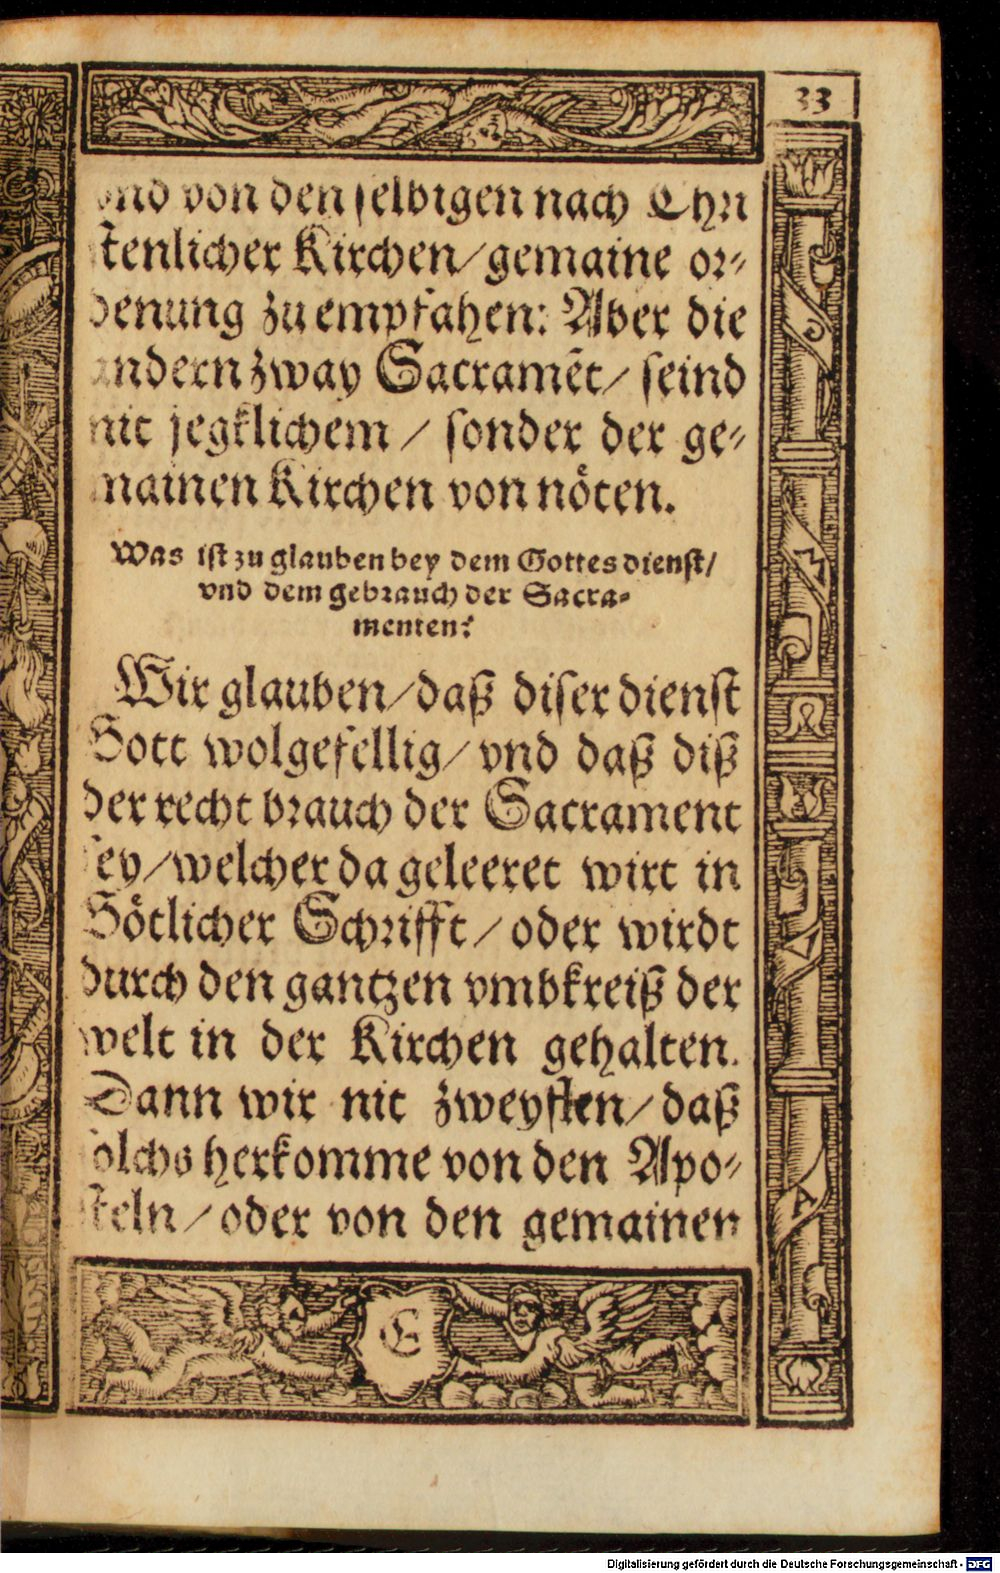 33
vnd von den selbigen nach Chri
stenlicher Kirchen/ gemaine or-
denung zu empfahen: Aber die
andern zway Sacramẽt/ seind
nit jegklichem/ sonder der ge-
mainen Kirchen von nöten.
Was ist zu glauben bey dem Gottesdienst/
vnd dem gebrauch der Sacra-
menten?
Wir glauben/ daß diser dienst
Gott wolgefellig/ vnd daß diß
der recht brauch der Sacrament
sey/ welcher da geleeret wirt in
Götlicher Schrifft/ oder wirdt
durch den gantzen vmbkreiß der
welt in der Kirchen gehalten.
Dann wir nit zweyflen/ daß
solchs herkomme von den Apo-
steln/ oder von den gemainen
E
Digitalisierung gefördert durch die Deutsche Forschungsgemeinschaft - DFG